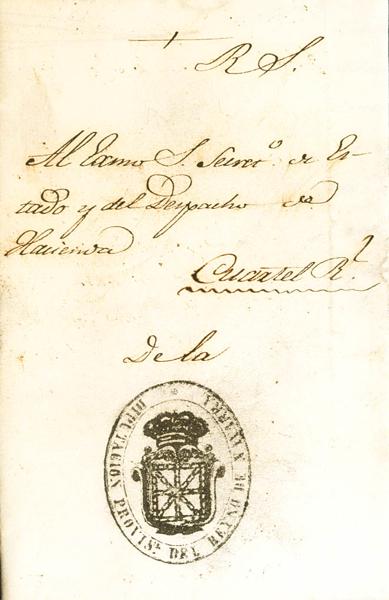 R S.
Al Exmo S. Secret.º de Es-
tado y del Despacho de
Hacienda
Cuartel R.l
De la
DIPUTACION PROVIS.L DEL REYNO DE NAVARRA